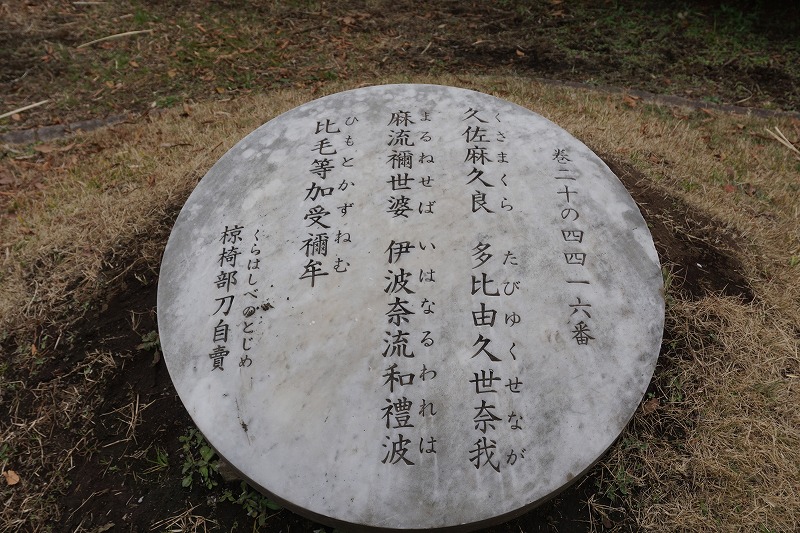 巻二十の四四一六番
くさまくら たびゆくせなが
久佐麻久良 多比由久世奈我
まるねせば いはなるわれは
麻流禰世婆 伊波奈流和禮波
ひもとかずねむ
比毛等加受禰牟
くらはしべのとじめ
椋椅部刀自賣